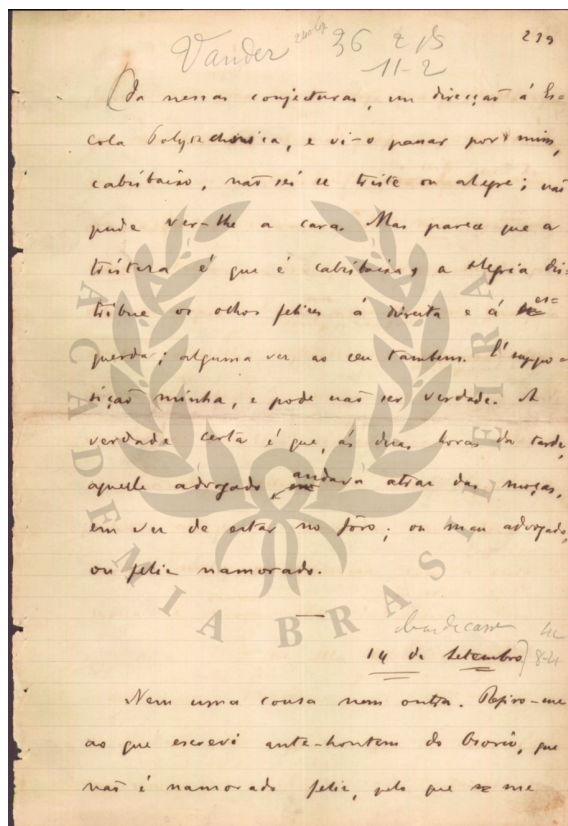 Vander 36 2 ps
239
11-2
(da nessas conjecturas, em direcção á Es-
cola Polytechnica, e vi-o passar por mim,
cabisbaixo, não sei se triste ou alegre; não
pude ver-lhe a cara. Mas parece que a
tristeza é que é cabisbaixa, a alegria dis-
tribue os olhos felizes á direita e á es-
querda; alguma vez ao ceu tambem. É suppo-
sição minha, e pode não ser verdade. A
verdade certa é que, ás duas horas da tarde,
aquelle advogado andava atraz das moças,
em vez de estar no fôro; ou mau advogado,
ou feliz namorado.
14 de Setembro
8-4
Nem uma cousa nem outra. Refiro-me
ao que escrevi ante-hontem do Osorio, que
não é namorado feliz, pelo que se me
ACADEMIA BRASILEIRA